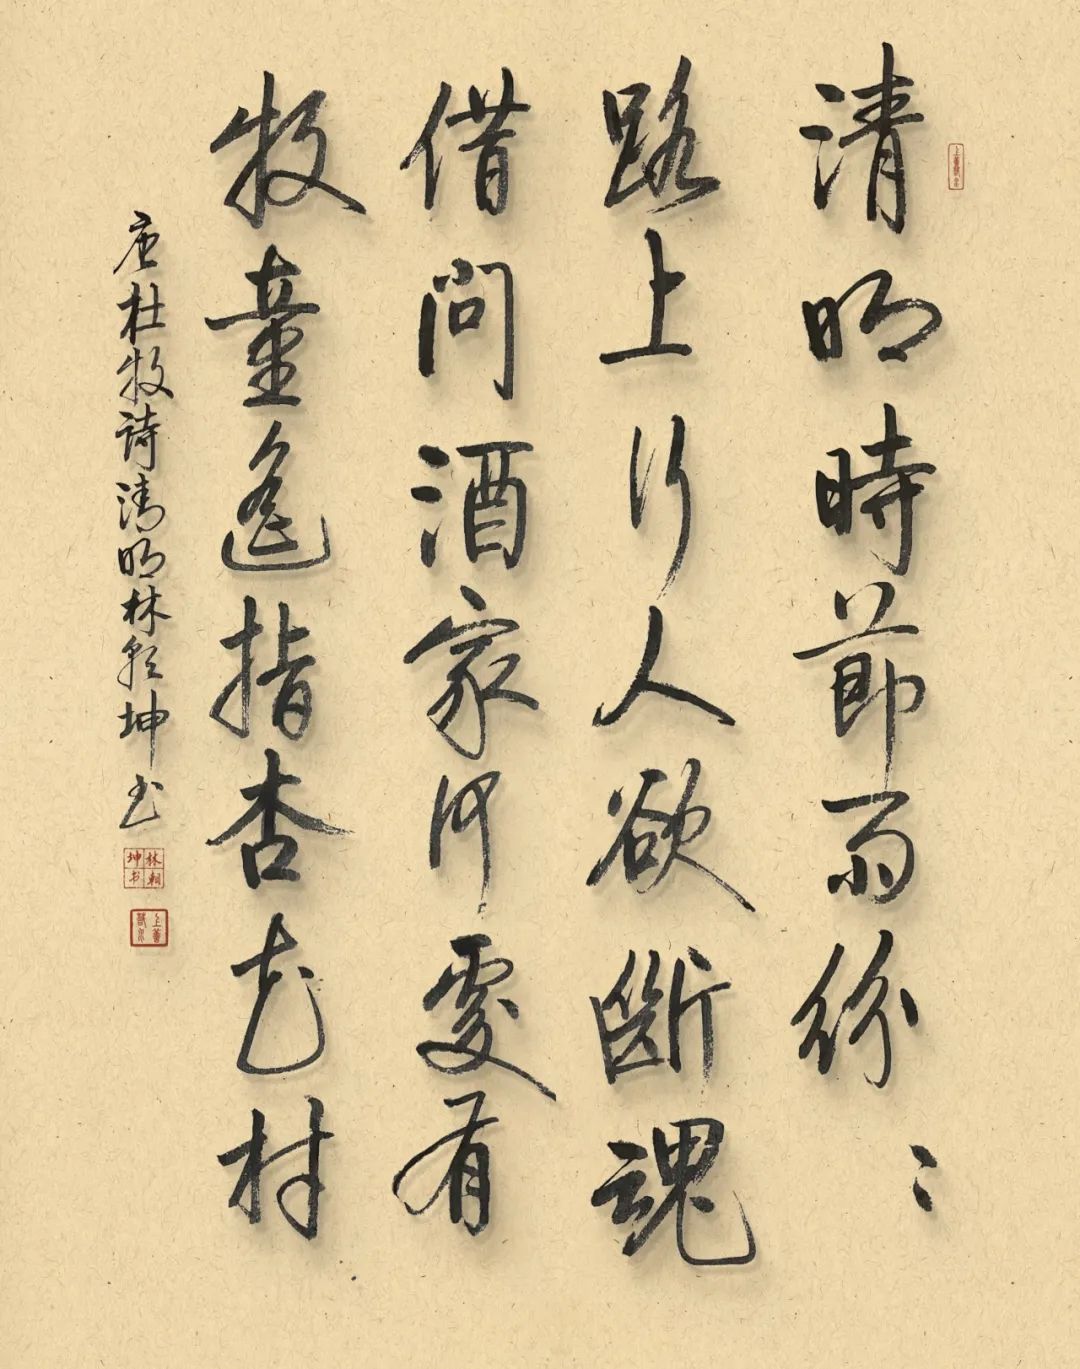 清明時節雨紛〻
路上行人欲斷魂
借問酒家何處有
牧童遙指杏花村
唐杜牧詩清明林坤书
上善若水